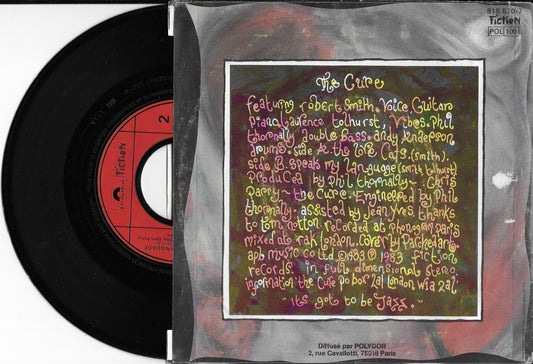 815 570-7
Fiction
POL 100
the Cure
featuring robert Smith. Voice, Guitar,
piano, Laurence tolhurst, Vibes. Phil
thornally double bass. andy anderson
drums ~ side A the love Cats. (smith).
side B. speak my language (smith tolhurst)
Produced by phil thornally ~ Chris
Parry ~ the Cure. Engineered by Phil
thornally ~ assisted by Jean Yves. thanks
to tom notton recorded at phonogram paris
mixed at rak london. Cover by Parched art
apb music co ltd © 1983 ℗ 1983 fiction
records. in full dimensional stereo
information the Cure po box 2al london w1a 2al
" its got to be Jazz. "
Diffusé par POLYDOR
2, rue Cavallotti, 75018 Paris
2
Fiction
LANGUAGE